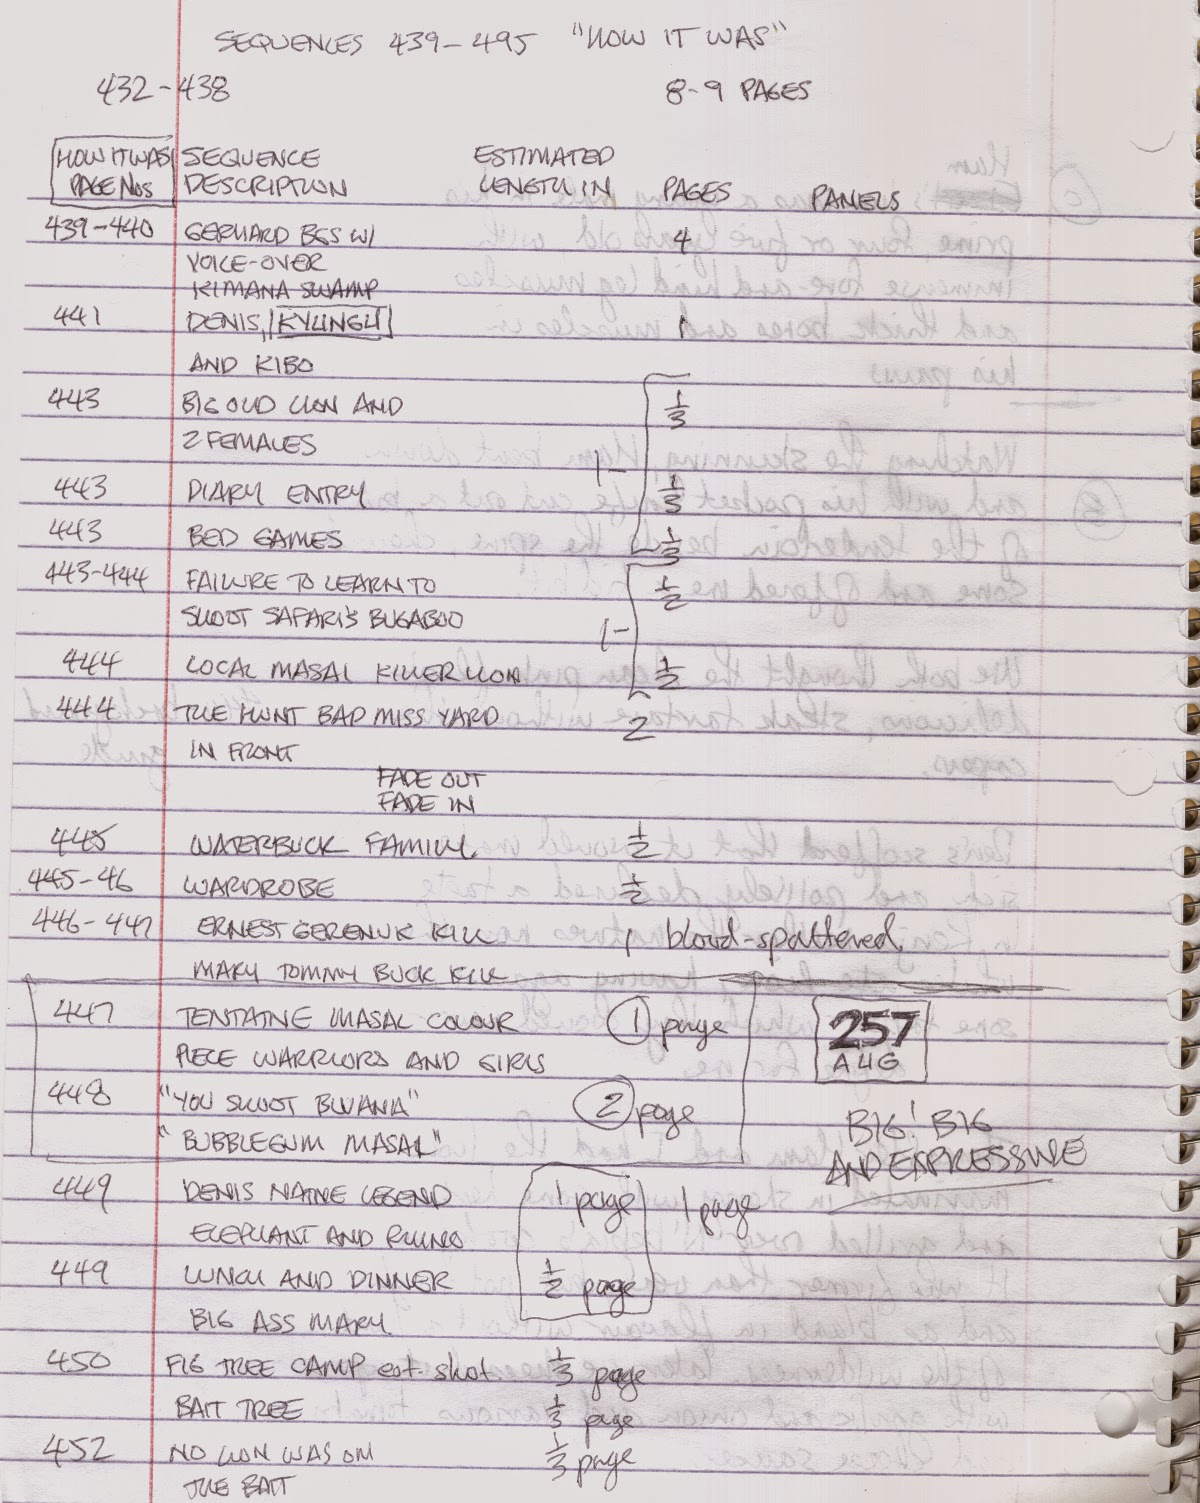 SEQUENCES 439-495 "HOW IT WAS"
432-438 8-9 PAGES
HOW IT WAS SEQUENCE ESTIMATED
PAGE NOS DESCRIPTION LENGTH IN PAGES PANELS
439-440 GERHARD BGS W/ 4
VOICE-OVER
KIMANA SWAMP
441 DENIS, KYUNGU 1
AND KIBO
443 BIG OLD LION AND 1/3
2 FEMALES
1-
443 DIARY ENTRY 1/3
443 BED GAMES 1/3
443-444 FAILURE TO LEARN TO 1/2
SHOOT SAFARI'S BUGABOO
1-
444 LOCAL MASAI KILLER LION 1/2
444 THE HUNT BAD MISS YARD 2
IN FRONT
FADE OUT
FADE IN
445 WATERBUCK FAMILY 1/2
445-46 WARDROBE 1/2
446-447 ERNEST GERENUK KILL 1 blood-spattered
MARY TOMMY BUCK KILL
447 TENTATIVE MASAI COLOUR 1 page 257
PIECE WARRIORS AND GIRLS AUG
448 "YOU SHOOT BWANA" 2 page BIG! BIG
"BUBBLEGUM MASAI" AND EXPRESSIVE
449 DENIS NATIVE LEGEND 1 page 1 page
ELEPHANT AND RHINO
449 LUNCH AND DINNER 1/2 page
BIG ASS MARY
450 FIG TREE CAMP est. shot 1/3 page
BAIT TREE 1/3 page
452 NO LION WAS ON 1/3 page
THE BAIT